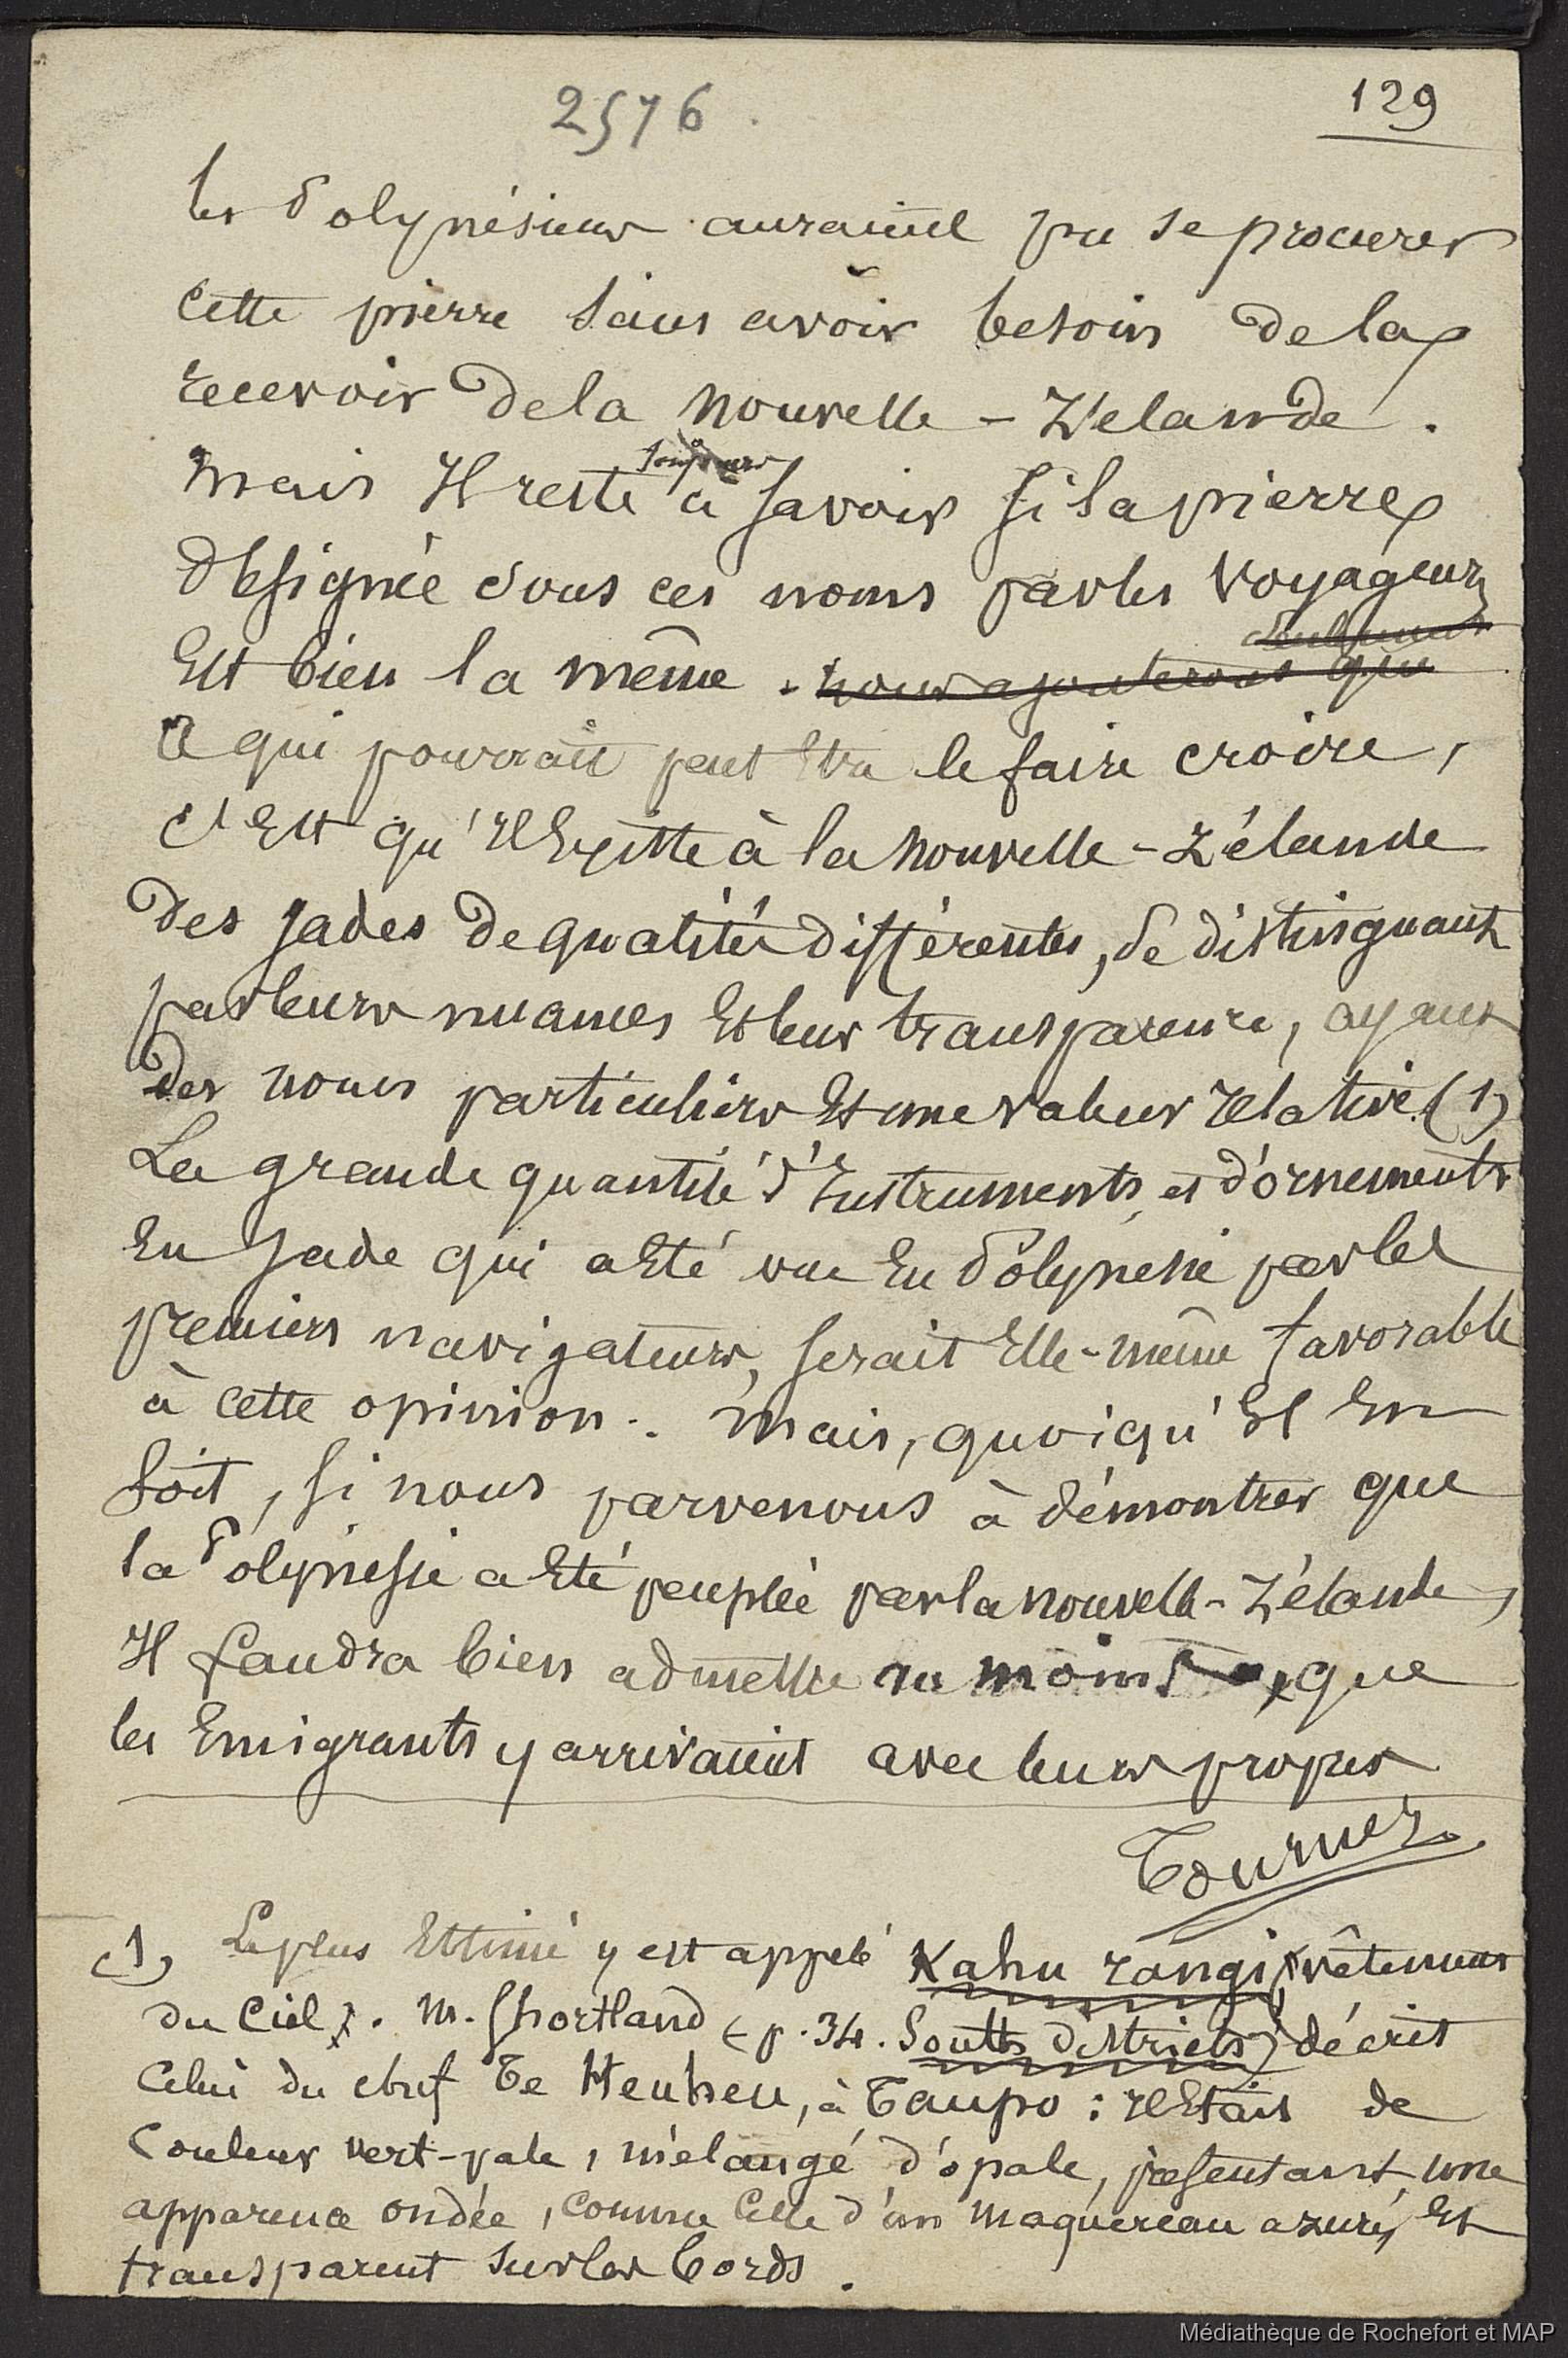 2576.
129
les Polynésiens auraient pu se procurer
cette pierre sans avoir besoin de la
recevoir de la Nouvelle-Zélande.
Mais Il reste à savoir si la pierre
désignée sous ces noms par les voyageurs
Est bien la même. nous ajouterons que
seulement
Ce qui pourrait peut Etre le faire croire,
c'Est qu'Il Existe à la Nouvelle-Zélande
des jades de qualités différentes, se distinguant
par leurs nuances Et leur transparence, ayant
des noms particuliers Et une valeur relative (1)
La grande quantité d'Instruments et d'ornements
En Jade qui a Eté vue En Polynésie par les
premiers navigateurs, serait Elle-même favorable
à cette opinion. Mais, quoiqu'Il En
soit, si nous parvenons à démontrer que
la Polynésie a Eté peuplée par la Nouvelle-Zélande,
Il faudra bien admettre au moins que
les Emigrants y arrivaient avec leurs propres
Tournez
(1) Le plus Estimé y est appelé Kahu rangi (vêtement
du Ciel). M. Shortland (p. 34. South districts) décrit
Celui du chef Te Heuheu, à Taupo : Il Etait de
Couleur vert-pale, mélangé d'opale, présentant une
apparence ondée, comme Celle d'un maquereau azuré, Et
transparent sur les bords.
Médiathèque de Rochefort et MAP